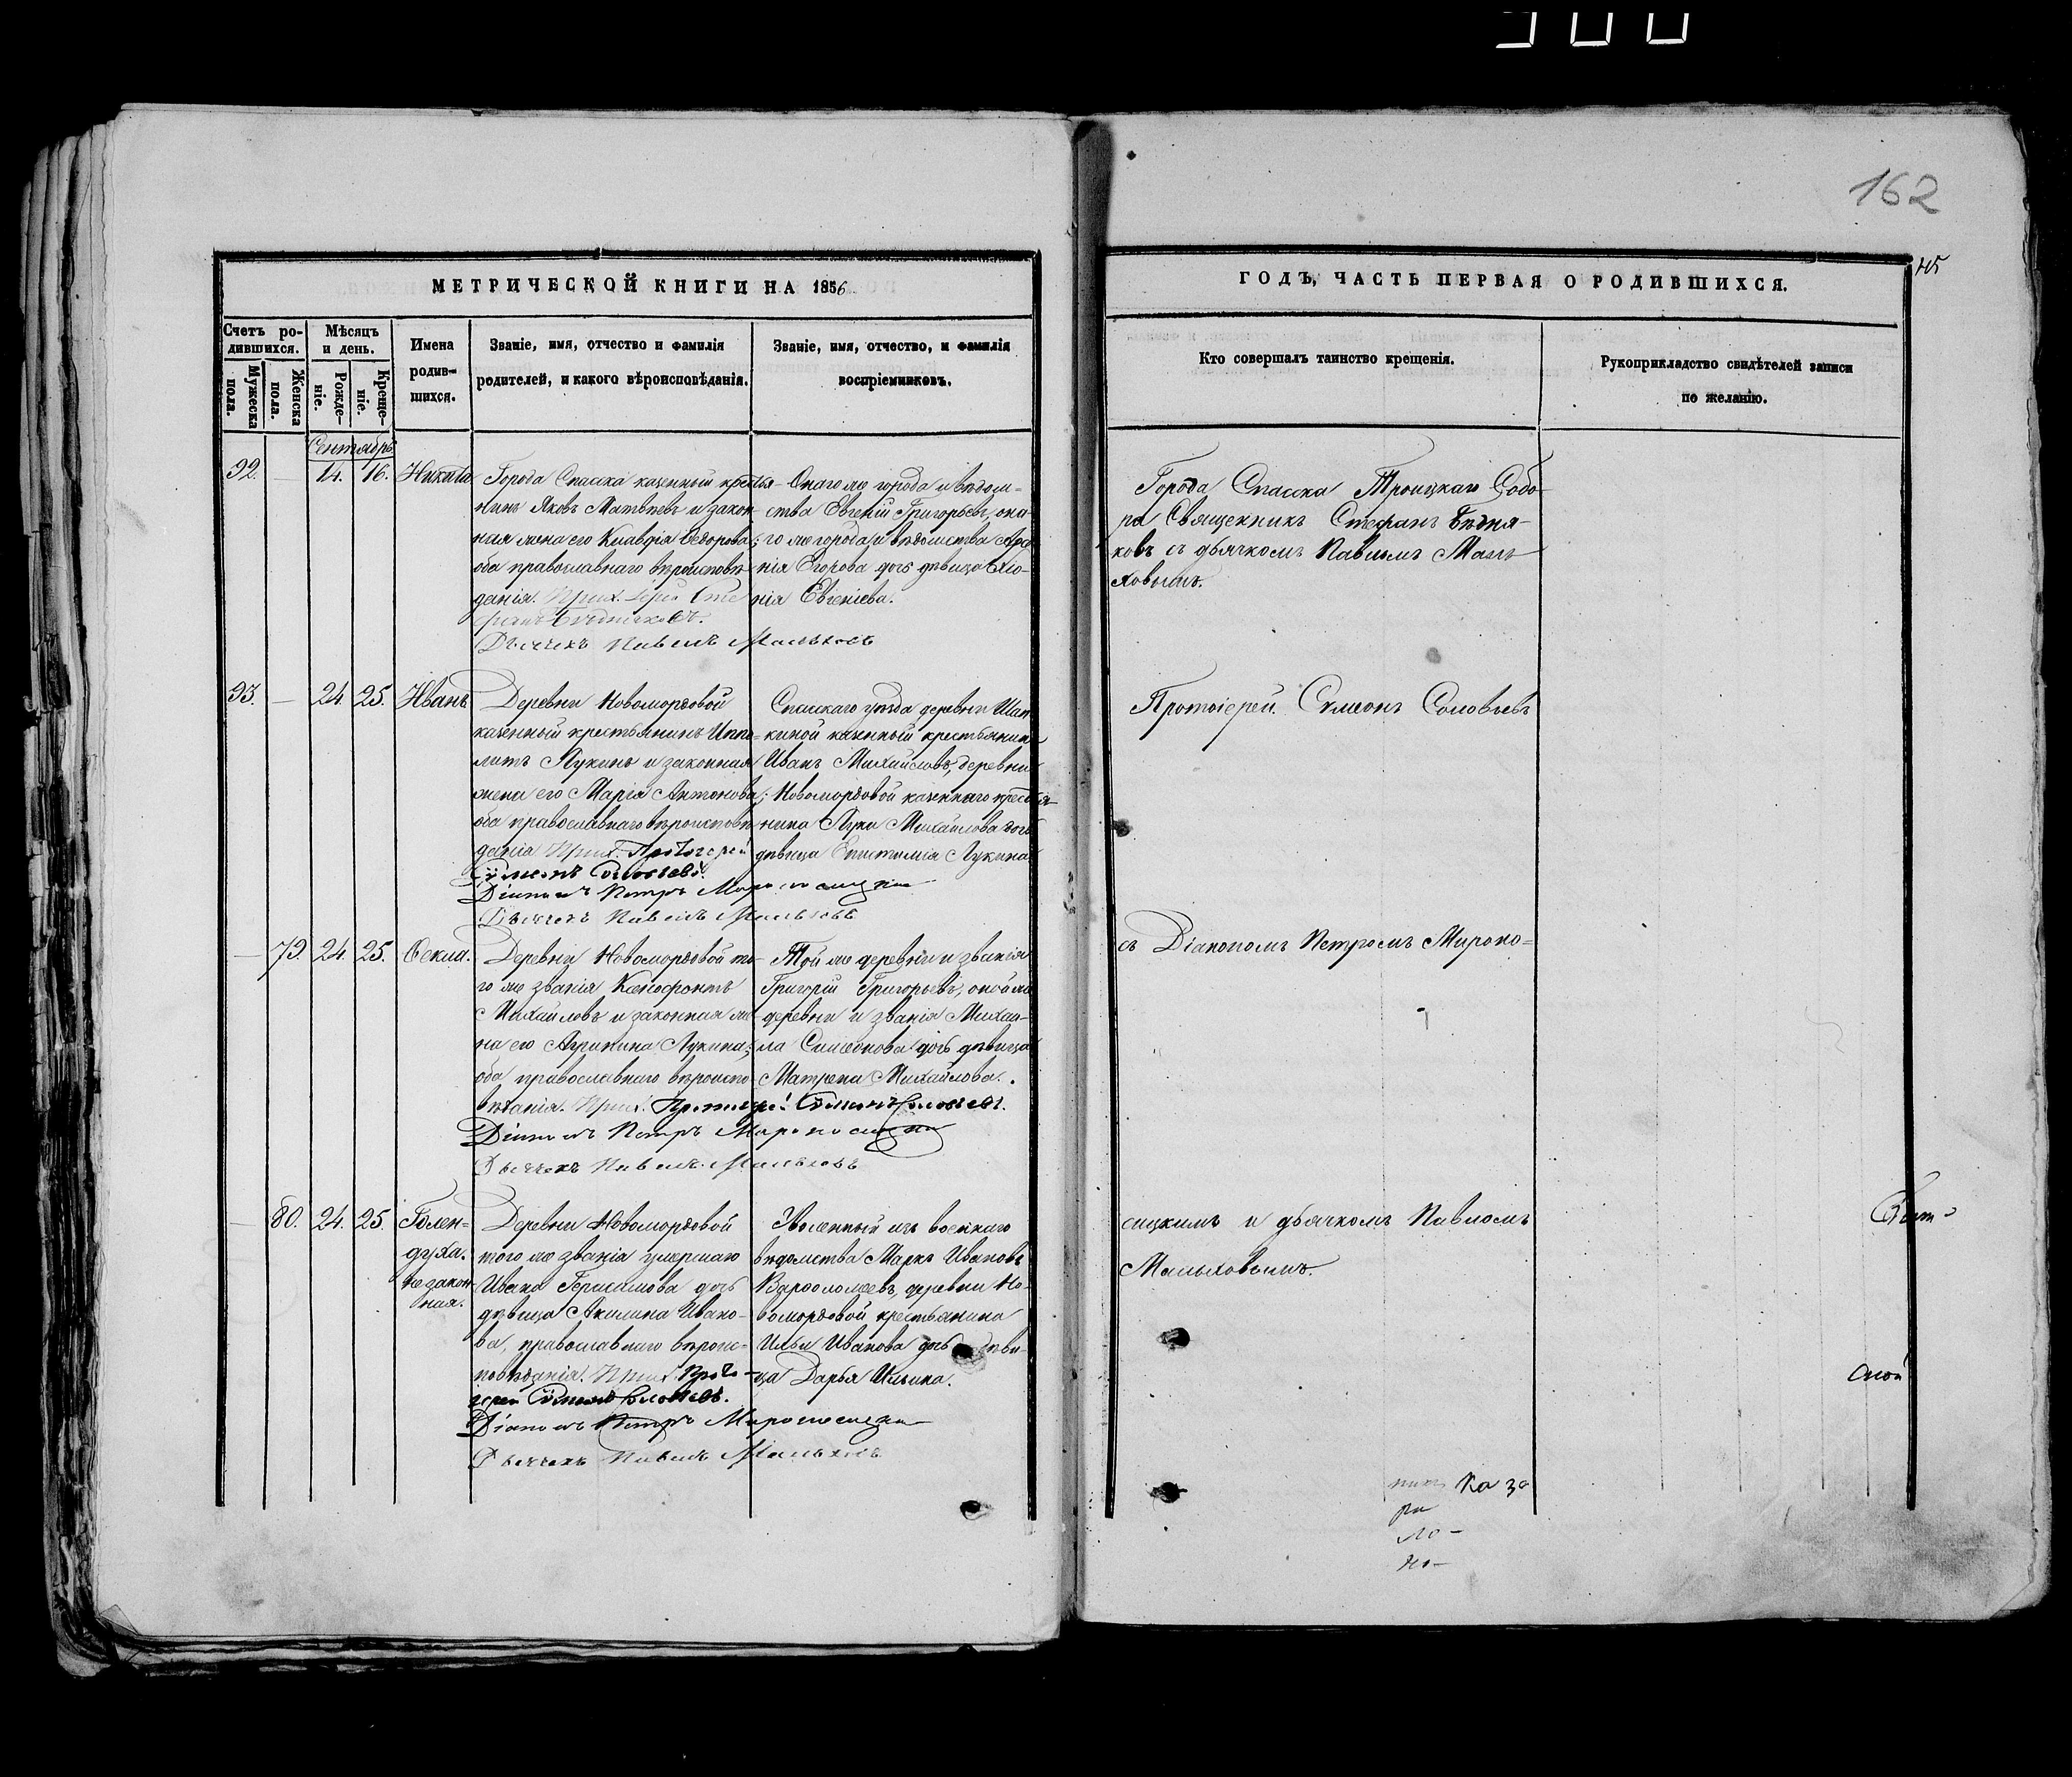 162
МЕТРИЧЕСКОЙ КНИГИ НА 1856
ГОДЪ, ЧАСТЬ ПЕРВАЯ О РОДИВШИХСЯ.
Счетъ ро-
дившихся.
Мужеска
пола.
Женска
пола.
Мѣсяцъ
и день.
Рожде-
ніе.
Креще-
ніе.
Имена
родив-
шихся.
Званіе, имя, отчество и фамилія
родителей, и какого вѣроисповѣданія.
Званіе, имя, отчество, и фамилія
воспріемниковъ.
Кто совершалъ таинство крещенія.
Рукоприкладство свидѣтелей записи
по желанію.
Сентябрь
92. — 14. 16. Никита
Города Спасска казенный крестья-
нинъ Яковъ Матвѣевъ и закон-
ная жена его Клавдія Ѳедорова;
оба православнаго вѣроисповѣ-
данія. Прих. Іерей Сте
фанъ Бѣдняковъ.
Дьячекъ Павелъ Мальховъ
Онаго же города и вѣдом-
ства Евгеній Григорьевъ, она-
го же города и вѣдомства
Егорова дочь дѣвица
Евгеніева.
Города Спасска Троицкаго Собо-
ра Священникъ Стефанъ Бѣдня-
ковъ съ дьячкомъ Павломъ Маль
ховымъ.
93. — 24. 25. Иванъ
Деревни Новомордовой
казенный крестьянинъ Иппо-
литъ Лукинъ и законная
жена его Марія Антонова;
оба православнаго вѣроисповѣ
данія Прих. Протоіерей
Сѵмеонъ Соловьевъ.
Діаконъ Петръ Мироносицкій
Дьячекъ Павелъ Мальховъ
Спасскаго уѣзда деревни
киной казенный крестьянинъ
Иванъ Михайловъ, деревни
Новомордовой казеннаго крестья-
нина Луки Михайлова дочь
дѣвица Епистимія Лукина
Протоіерей Сѵмеонъ Соловьевъ
— 79. 24. 25. Ѳекла.
Деревни Новомордовой то-
го же званія Ксенофонтъ
Михайловъ и законная же-
на его Агрипина Лукина;
оба православнаго вѣроиспо
вѣданія. Прих. Протоіерей Сѵмеонъ Соловьевъ.
Діаконъ Петръ Мироносицкій
Дьячекъ Павелъ Мальховъ
Той же деревни и званія
Григорій Григорьевъ, оной же
деревни и званія Михаи-
ла Симеонова дочь дѣвица
Матрена Михайлова.
съ Діакономъ Петромъ Мироно-
— 80. 24. 25. Голен-
духа.
незакон
ная.
Деревни Новомордовой
того же званія умершаго
Ивана Герасимова дочь
дѣвица Акилина Ивано-
ва, православнаго вѣроис-
повѣданія. Прих. Прото-
іерей Сѵмеонъ Соловьевъ.
Діаконъ Петръ Мироносицкій
Дьячекъ Павелъ Мальховъ
Уволенный изъ военнаго
вѣдомства Маркъ Ивановъ
Варѳоломеевъ, деревни Но-
вомордовой крестьянина
Ильи Иванова дочь дѣви-
ца Дарья Ильина.
сицкимъ и дьячкомъ Павломъ
Мальховымъ.
ской
ка за
ра
ло-
но-